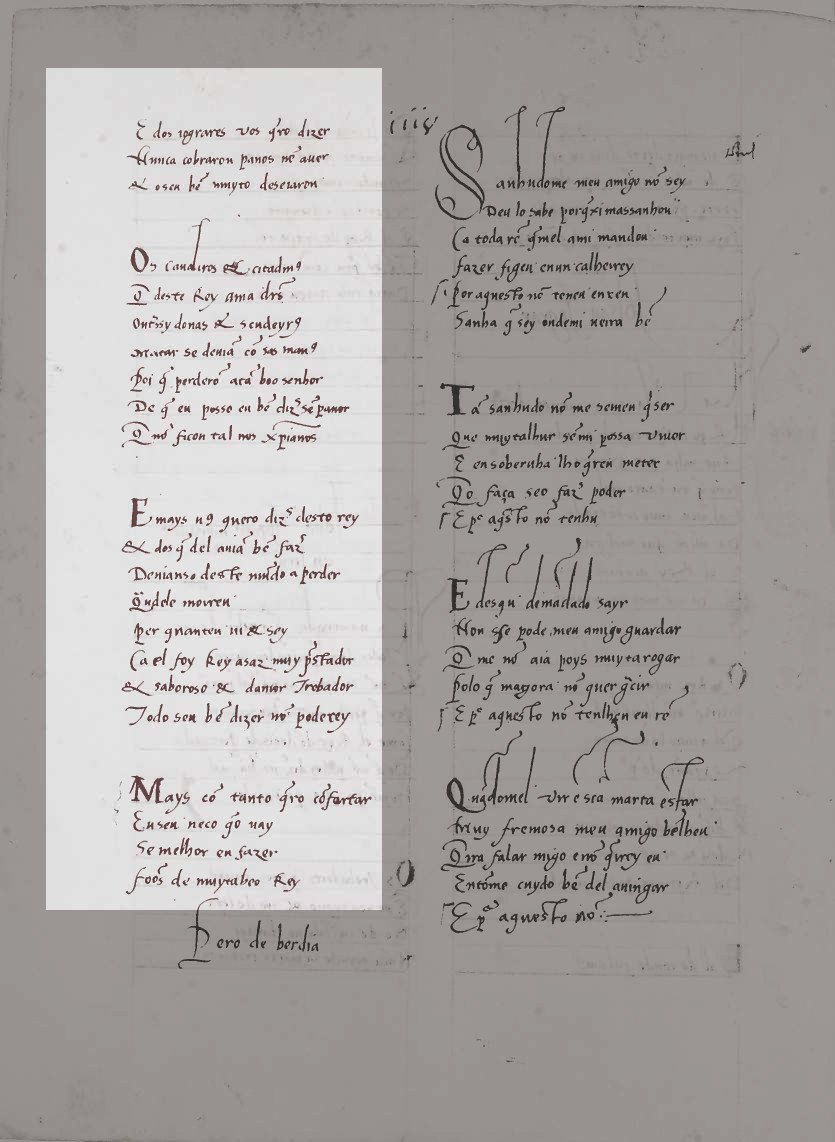 E dos iograres vos q̃ro dizer
Nunca cobraron panos nẽ auer
& o seu bẽ muyto deseiaron
Os caualeros & citadãos
Q̃ deste Rey auiã drs̃
Outssy donas & scudeyros
Matar se deuiã cõ sas mãos
Poi q̃ perderõ atã boo senhor
De q̃ eu posso en bẽ diz̃ sẽ pauor
Q̃ nõ ficou tal nos xp̃ianos
E mays u9 quero diz̃ desto rey
& dos q̃ del auiã bẽ faz̃
Deuianso deste mũdo a perder
Qũdele morreu
Per quanteu ui & sey
Ca el foy Rey asaz muy p̃stador
& saboroso & damor Trobador
Todo seu bẽ dizer nõ poderey
Mays cõ tanto q̃ro cõfortar
En seu neco q̃o uay
Se melhor en fazer
foos de muytabeo Rey
Pero de berdia
iiij
Sanhudome meu amigo nõ sey
Deu lo sabe porq̃ximassanhou
Ca toda rẽ q̃mel a mi mandou
fazer figeu enun calheirey
Por aquesto nõ teneu enren
Sanha q̃ sey ondemi ueira bẽ
Tã sanhudo nõ me semeu q̃ser
Que muytalhur sẽmi possa viuer
E en soberuha lho q̃reu meter
Qo faça seo faz̃ poder
E p̃ aq̃sto nõ tenhu
E des qui demãdado sayr
Non sse pode meu amigo guardar
Q̃ me nõ aia poys muytarogar
Polo q̃ magora nõ quer g̃cir
E p̃ aquesto nõ tenlheu eu rẽ
Quãdomel vir e scã marta estar
Muy fremosa meu amigo bẽlheu
Qira falar migo e nõ q̃rrey eu
Entõme cuydo bẽ del auingar
E p̃ aquesto nõ